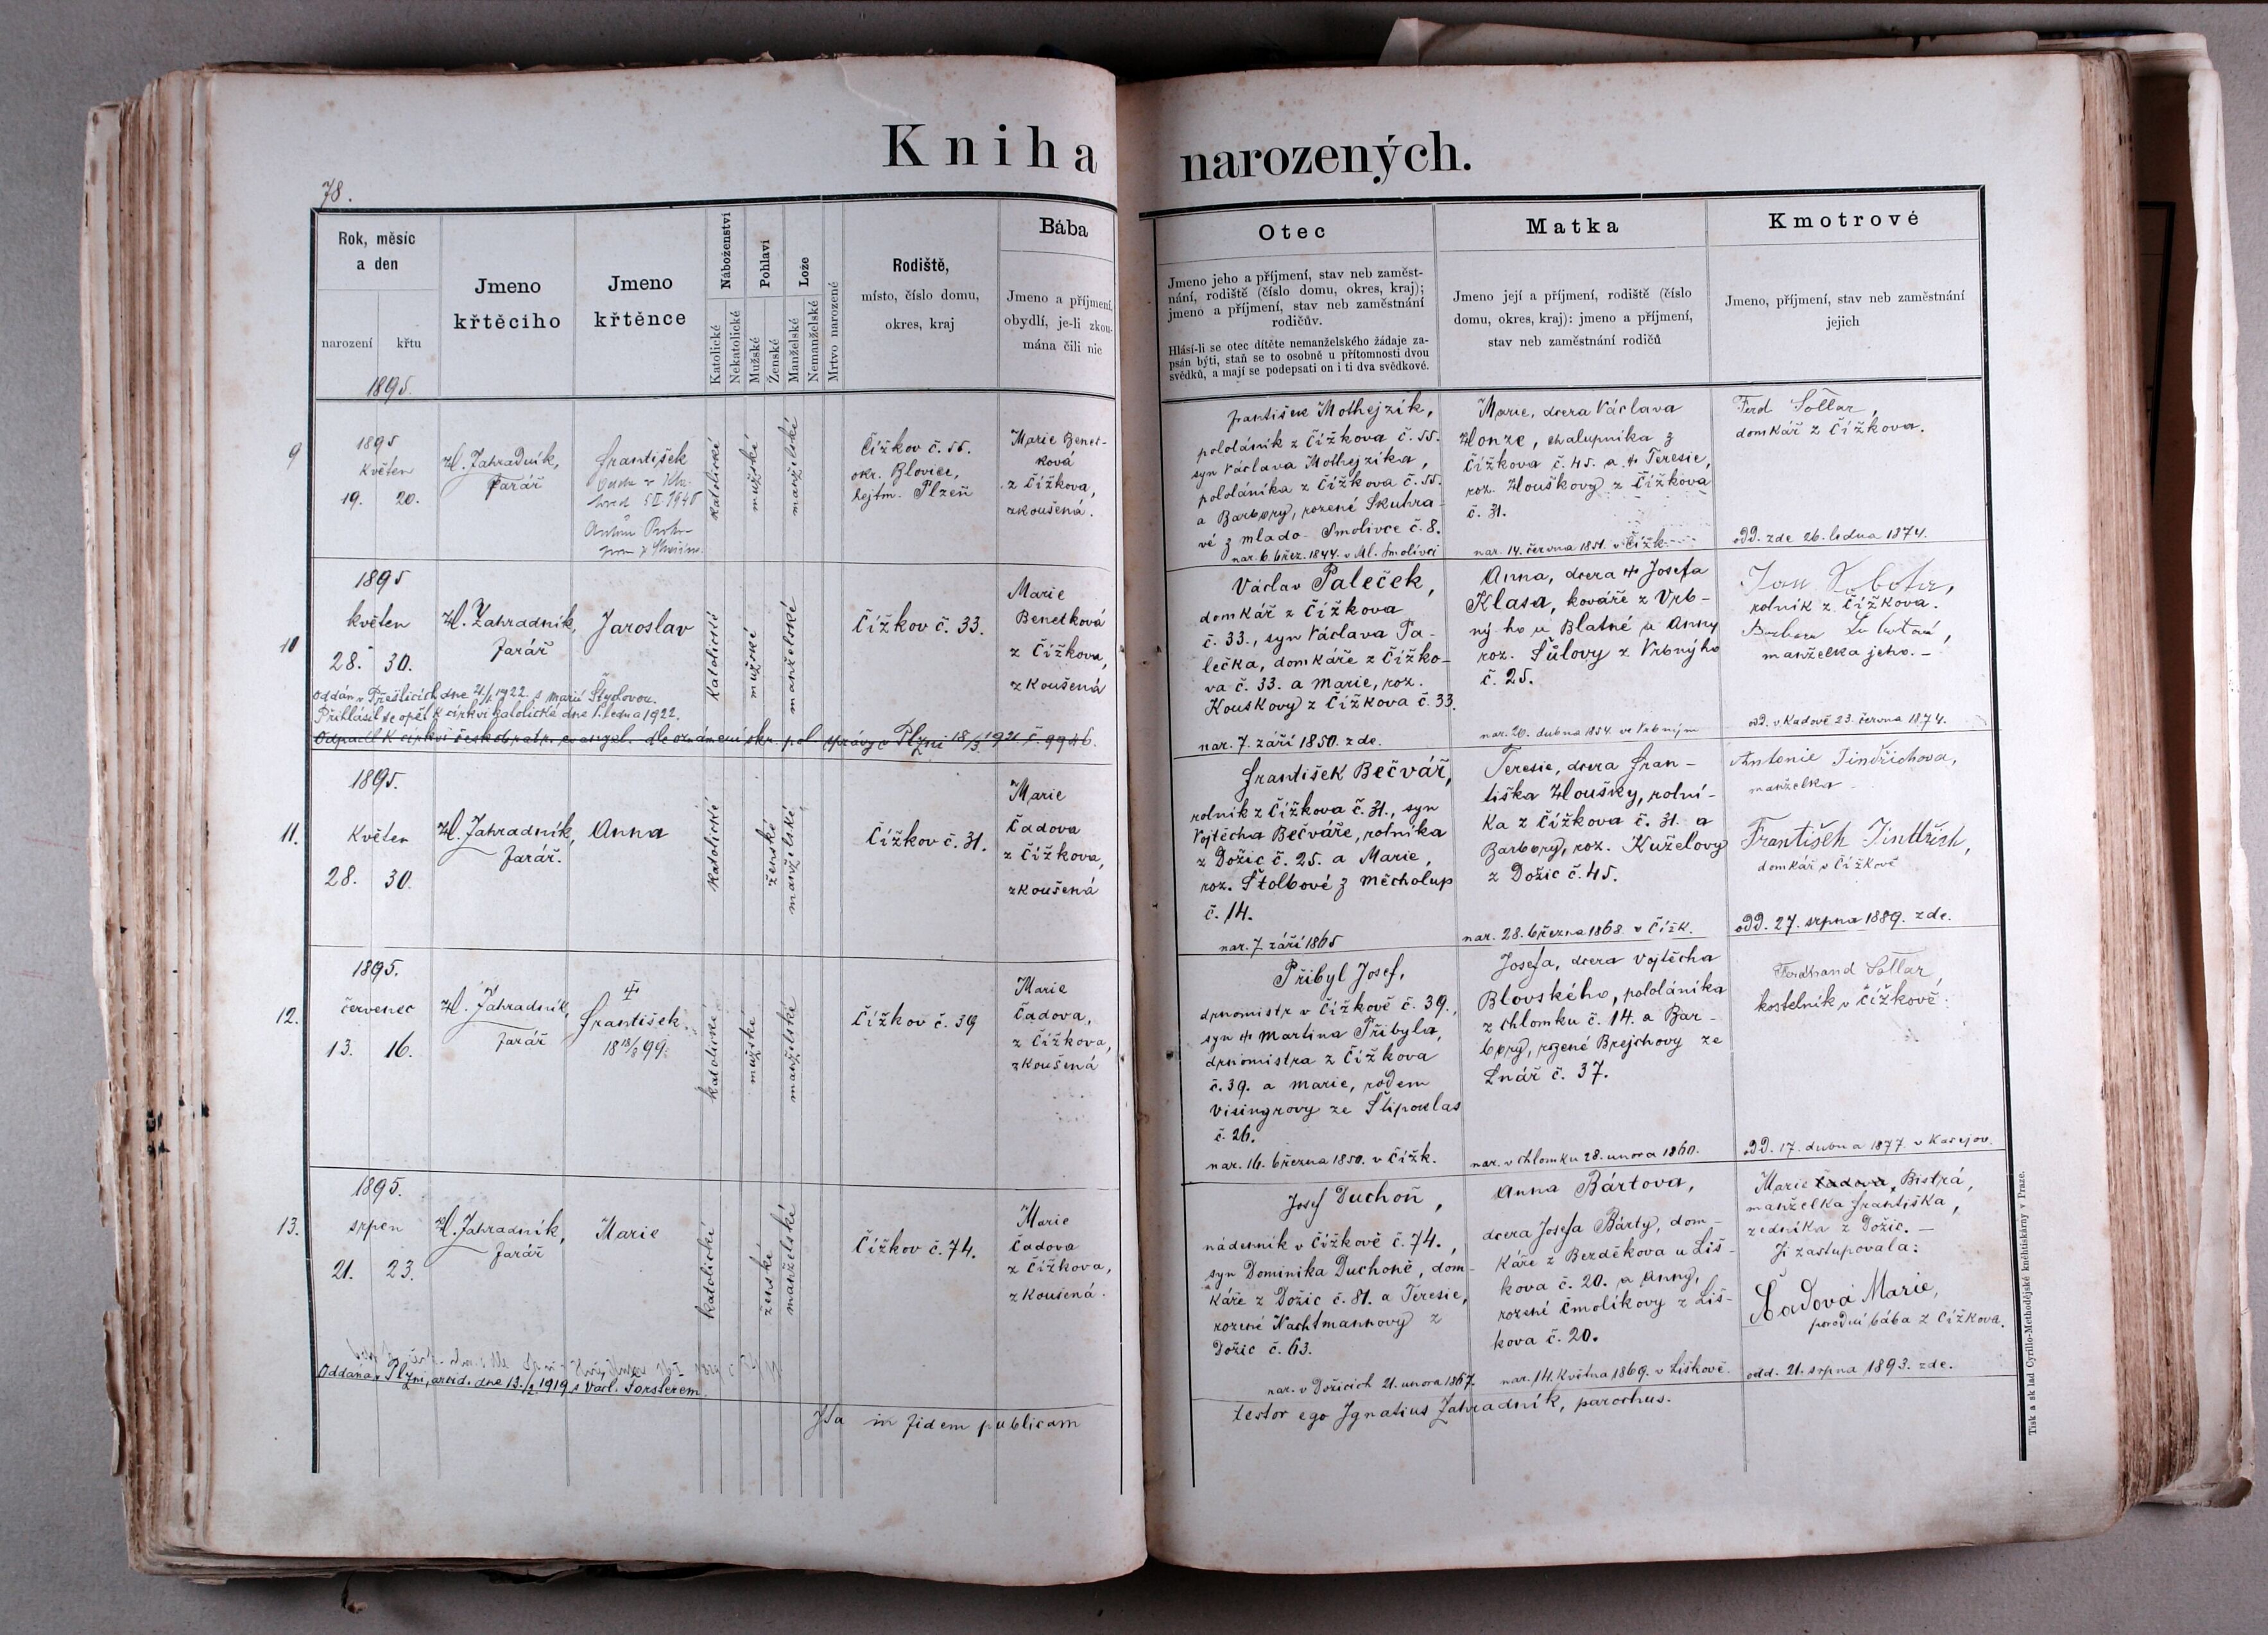 Kniha narozených.
78.
Rok, měsíc
a den
narození křtu
1895.
Jmeno
křtěcího
Jmeno
křtěnce
Náboženství
Katolické
Nekatolické
Pohlaví
Mužské
Ženské
Lože
Manželské
Nemanželské
Mrtvo narozené
Rodiště,
místo, číslo domu,
okres, kraj
Bába
Jmeno a příjmení,
obydlí, je-li zkou-
mána čili nic
Otec
Jmeno jeho a příjmení, stav neb zaměst-
nání, rodiště (číslo domu, okres, kraj);
jmeno a příjmení, stav neb zaměstnání
rodičův.
Hlásí-li se otec dítěte nemanželského žádaje za-
psán býti, staň se to osobně u přítomnosti dvou
svědků, a mají se podepsati on i ti dva svědkové.
Matka
Jmeno její a příjmení, rodiště (číslo
domu, okres, kraj): jmeno a příjmení,
stav neb zaměstnání rodičů
Kmotrové
Jmeno, příjmení, stav neb zaměstnání
jejich
9
1895
Květen
19. 20.
H. Zahradník,
Farář
František
katolické
mužské
manželské
Čížkov č. 55.
okr. Blovice,
hejtm. Plzeň
Marie Benet-
ková
z Čížkova,
zkoušená.
František Mothejzík,
pololáník z Čížkova č. 55.
syn Václava Mothejzíka,
pololáníka z Čížkova č. 55.
a Barbory, rozené Skuhra-
vé z mlado-Smolivce č. 8.
nar. 6. břez. 1844. v Ml. Smolivci
Marie, dcera Václava
Honze, chalupníka z
Čížkova č. 45. a Teresie,
roz. Houškovy z Čížkova
č. 31.
nar. 14. června 1851. v Čížk.
Ferd Sollar,
domkář z Čížkova.
odd. zde 26. ledna 1874.
10
1895
květen
28. 30.
H. Zahradník,
farář
Jaroslav
katolické
mužské
manželské
Čížkov č. 33.
Marie
Benetková
z Čížkova,
zkoušená
oddán v Přešticích dne 21/1 1922. s Marií Štychovou.
Přihlásil se opět k církvi katolické dne 1. ledna 1922.
Odpadl k církvi českobratr. evangel. dle oznámení okr. pol. správy v Plzni 18/3 1921 č. 9946.
Václav Paleček,
domkář z Čížkova
č. 33., syn Václava Pa-
lečka, domkáře z Čížko-
va č. 33. a Marie, roz.
Kouskovy z Čížkova č. 33.
nar. 7. září 1850. zde.
Anna, dcera Josefa
Klasa, kováře z Vrb-
ný-ho u Blatné a Anny
roz. Šůlovy z Vrbnýho
č. 25.
nar. 20. dubna 1854. ve Vrbným
rolník z Čížkova.
manželka jeho. -
odd. v Kadově 23. června 1874.
11.
1895.
Květen
28. 30.
H. Zahradník,
farář.
Anna
katolické
ženské
manželské
Čížkov č. 31.
Marie
Čadova
z Čížkova,
zkoušená
František Bečvář,
rolník z Čížkova č. 31., syn
Vojtěcha Bečváře, rolníka
z Dožic č. 25. a Marie,
roz. Štolbové z Měcholup
č. 14.
nar. 7. září 1865
Teresie, dcera Fran-
tiška Housky, rolní-
ka z Čížkova č. 31. a
Barbory, roz. Kuželovy
z Dožic č. 45.
nar. 28. března 1868. v Čížk.
Antonie Jindřichova,
manželka
František Jindřich,
domkář v Čížkově
odd. 27. srpna 1889. zde.
12.
1895.
červenec
13. 16.
H. Zahradník,
farář
František.
18 18/3 99.
katolické
mužské
manželské
Čížkov č. 39
Marie
Čadova,
z Čížkova,
zkoušená
Přibyl Josef,
drnomistr v Čížkově č. 39.,
syn Martina Přibyla,
drnomistra z Čížkova
č. 39. a Marie, rodem
Visingrovy ze Štipoklas
č. 26.
nar. 16. března 1850. v Čížk.
Josefa, dcera Vojtěcha
Blovského, pololáníka
z Chlomku č. 14. a Bar-
bory, rozené Brejchovy ze
Lnář č. 37.
nar. v Chlomku 28. unora 1860.
Ferdinand Sollar,
kostelník v Čížkově.
odd. 17. dubna 1877. v Kasejov.
13.
1895.
srpen
21. 23.
H. Zahradník,
farář
Marie
katolické
ženské
manželské
Čížkov č. 74.
Marie
Čadova
z Čížkova,
zkoušená.
Oddána v Plzni, arcid. dne 13./2 1919 s Václ. Forsterem
Josef Duchoň,
nádenník v Čížkově č. 74.,
syn Dominika Duchoně, dom-
káře z Dožic č. 81. a Teresie,
rozené Nachtmannovy z
Dožic č. 63.
nar. v Dožicích 21. unora 1867.
Anna Bártova,
dcera Josefa Bárty, dom-
káře z Bezděkova u Liš-
kova č. 20. a Anny,
rozené Čmolíkovy z Liš-
kova č. 20.
nar. 14. Května 1869. v Liškově.
Marie Čadova, Bistrá,
manželka Františka,
zedníka z Dožic. -
Ji zastupovala:
Čadová Marie,
porodní bába z Čížkova.
odd. 21. srpna 1893. zde.
Ita in fidem publicam testor ego Ignatius Zahradník, parochus.
Tisk a sklad Cyrillo-Methodějské kněhtiskárny v Praze.